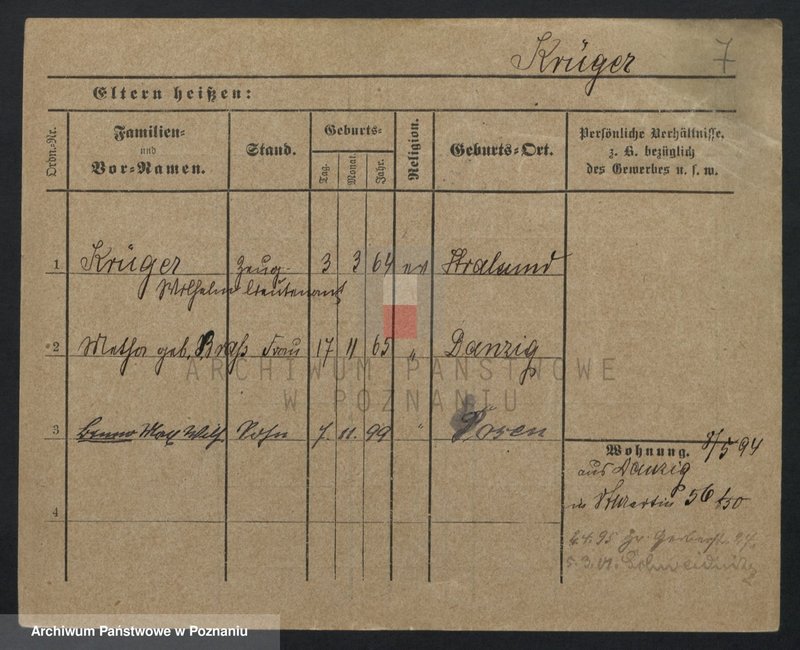 Krüger 7
Eltern heißen:
Ordn.-Nr.
Familien-
und
Vor-Namen.
Stand.
Geburts-
Tag.
Monat.
Jahr.
Religion.
Geburts-Ort.
Persönliche Verhältnisse.
z. B. bezüglich
des Gewerbes u. s. w.
1 Krüger Zeug- 3 3 64 ev Stralsund
Wilhelm lieutenant
2 Metha geb. Frau 17 11 65 " Danzig
ARCHIWUM PAŃSTWOWE
W POZNANIU
3 Benno Max Wilh Sohn 7. 11. 99 " Posen
Wohnung. 8/5 94
aus Danzig
in St Martin 56
4
2.4.95 Gr. Gerberst.
5.3.01. Schweidnitz
Archiwum Państwowe w Poznaniu